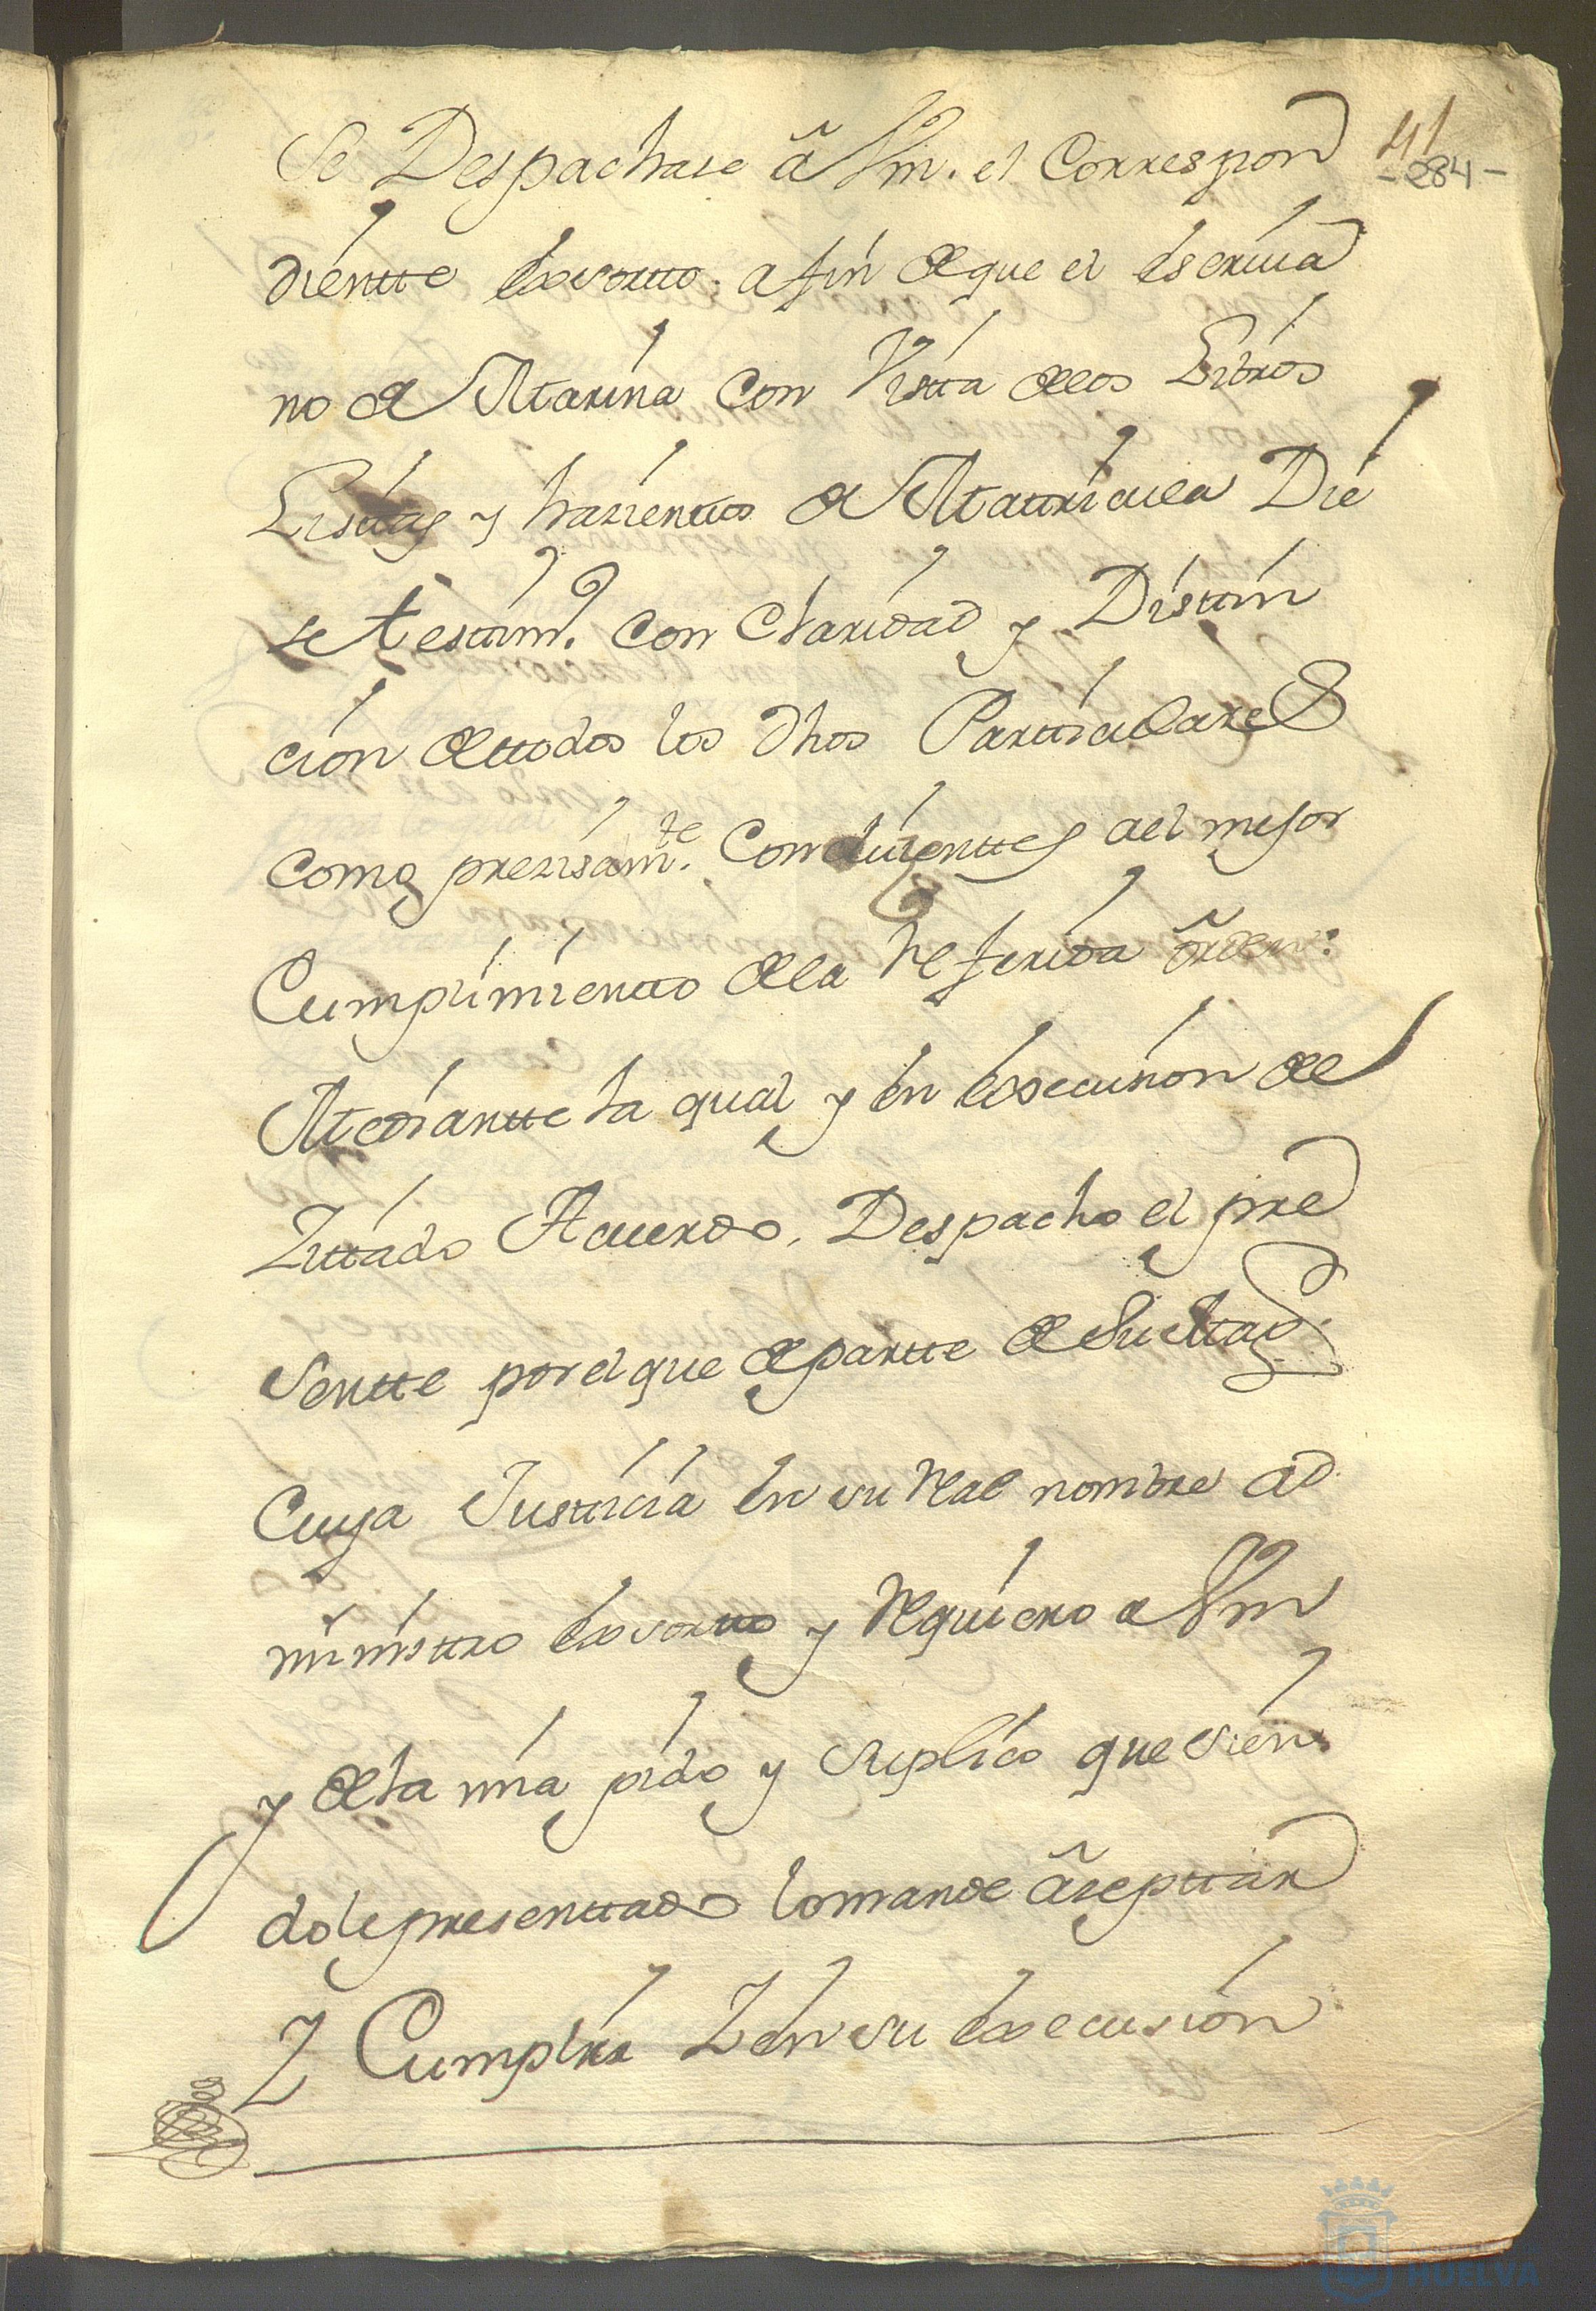 41
-284-
Se Despachase â Vm. el Correspon
dientte Exsortto. afin de que el Escriua
no de Marina Con Vistta delos Libros
Listtas y hazienttos de Mattricula Die
se testtim.º Con Claridad y Disttin
ción de ttodos los Dhos Partticulares
como prezisam.te Conduzenttes ael mejor
Cumplimientto dela Referida ôrden:
Mediantte la qual y En Execusion del
Zittado Acuerdo, Despacho el pre
Sentte por el que de partte de Su Magd.
Cuya Justticia En su Real nombre ad
ministtro Exsortto y Requiero a Vm
y dela mia pido y suplico que sien
dole presenttado lo mande âzepttar
Y Cumplir Y en su Execusion
HUELVA